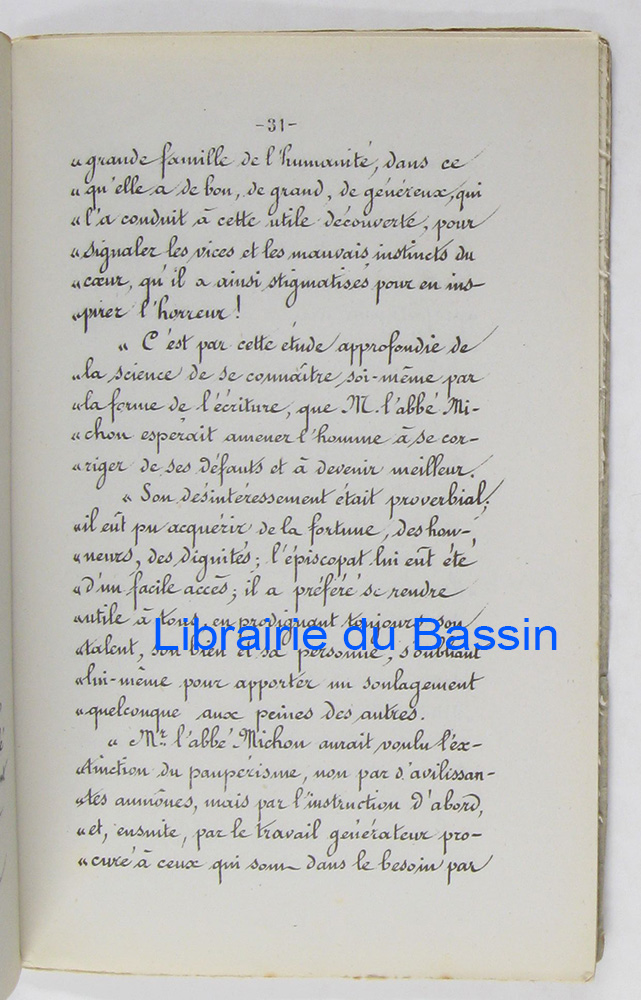 -31-
« grande famille de l'humanité, dans ce
« qu'elle a de bon, de grand, de généreux, qui
« l'a conduit à cette utile découverte, pour
« signaler les vices et les mauvais instincts du
« cœur, qu'il a ainsi stigmatisés pour en ins-
« pirer l'horreur !
« C'est par cette étude approfondie de
« la science de se connaître soi-même par
« la forme de l'écriture, que M. l'abbé Mi-
« chon espérait amener l'homme à se cor-
« riger de ses défauts et à devenir meilleur.
« Son désintéressement était proverbial;
« il eût pu acquérir de la fortune, des hon-
« neurs, des dignités; l'épiscopat lui eût été
« d'un facile accès; il a préféré se rendre
« utile à tous, en prodiguant toujours son
« talent, son bien et sa personne, s'oubliant
Librairie du Bassin
« lui-même pour apporter un soulagement
« quelconque aux peines des autres.
« Mr. l'abbé Michon aurait voulu l'ex-
« tinction du paupérisme, non par d'avilissan-
« tes aumônes, mais par l'instruction d'abord,
« et, ensuite, par le travail générateur pro-
« curé à ceux qui sont dans le besoin par